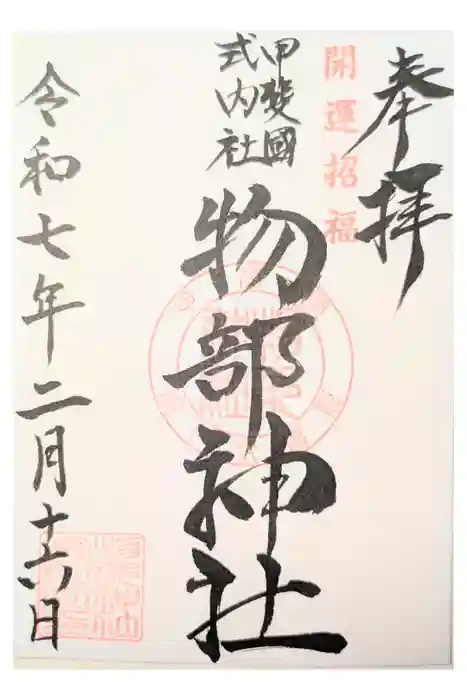 奉拝
開運招福
甲斐國
式内社
物部神社
令和七年二月十六日